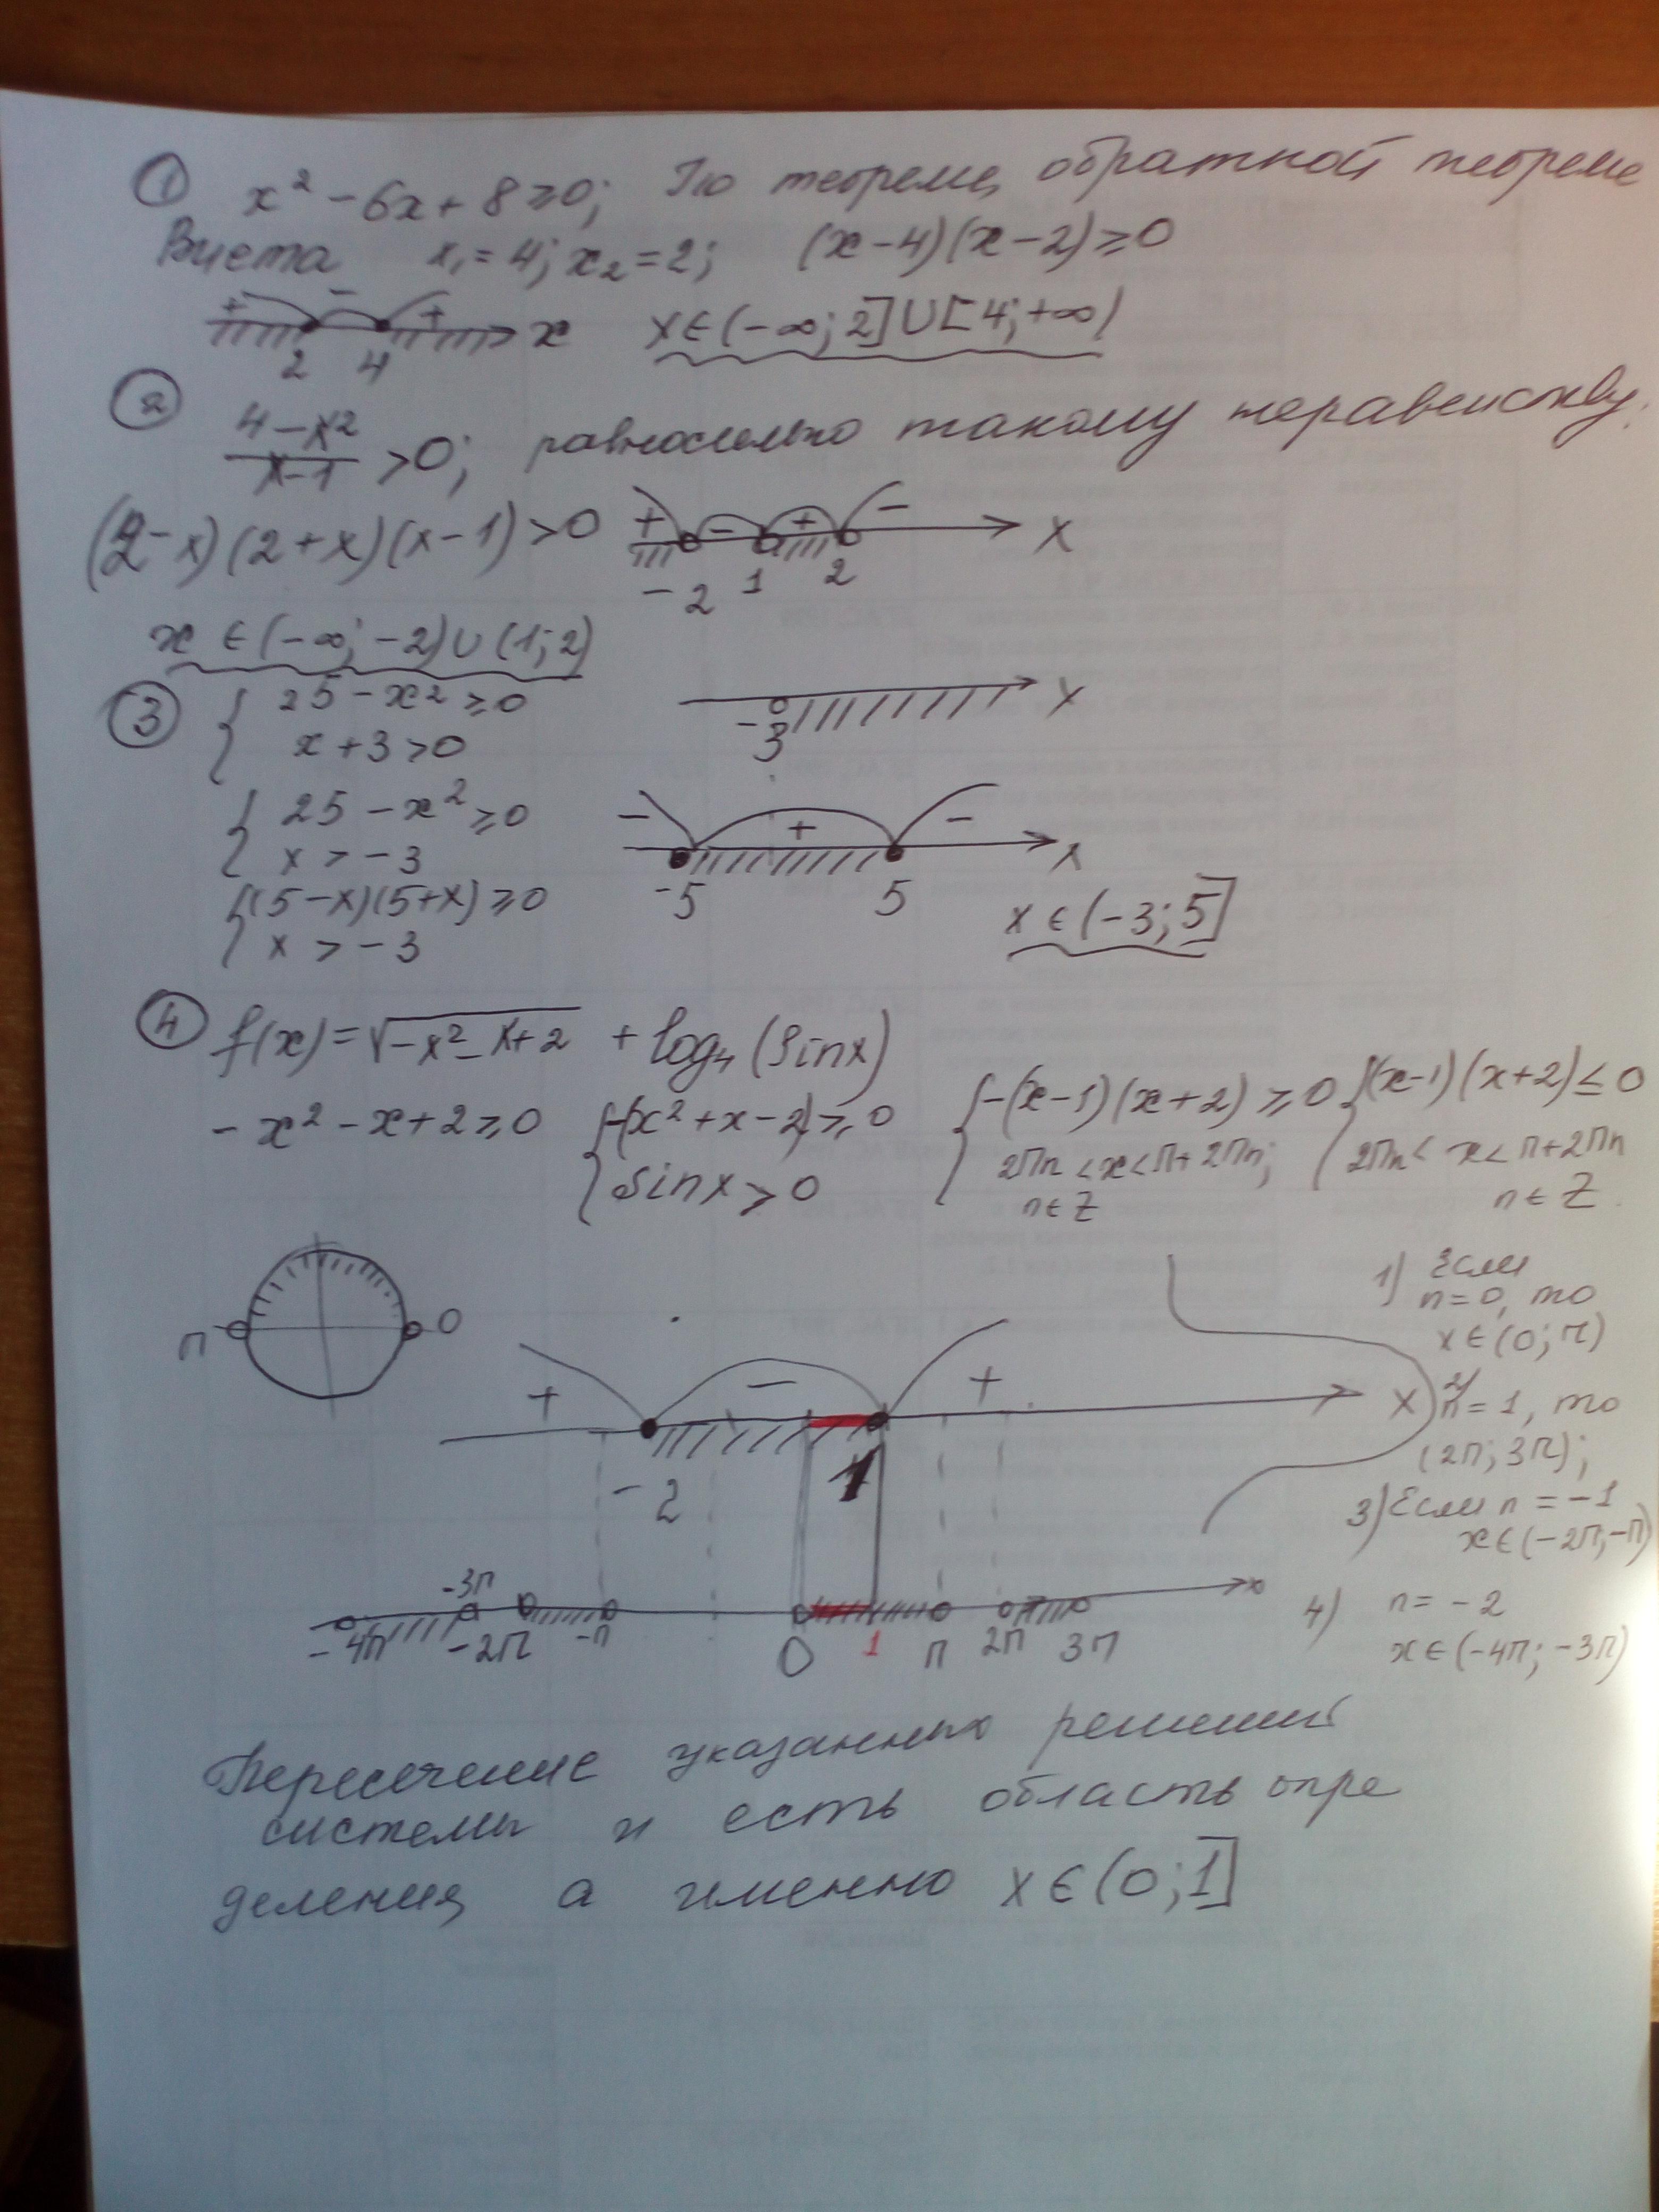 ① x² - 6x + 8 ≥ 0; По теореме, обратной теореме
Виета x₁ = 4; x₂ = 2; (x - 4)(x - 2) ≥ 0
+ - + x
2 4
x ∈ (-∞; 2] ∪ [4; +∞)
② (4 - x²)/(x - 1) > 0; равносильно такому неравенству:
(2 - x)(2 + x)(x - 1) > 0
+ - + - x
-2 1 2
x ∈ (-∞; -2) ∪ (1; 2)
③ { 25 - x² ≥ 0
x + 3 > 0
-3 x
{ 25 - x² ≥ 0
x > -3
- + - x
-5 5
{ (5 - x)(5 + x) ≥ 0
x > -3
x ∈ (-3; 5]
④ f(x) = √(-x² - x + 2) + log₄ (sinx)
-x² - x + 2 ≥ 0
{ -(x² + x - 2) ≥ 0
sinx > 0
{ -(x - 1)(x + 2) ≥ 0
2πn < x < π + 2πn;
n ∈ Z
{ (x - 1)(x + 2) ≤ 0
2πn < x < π + 2πn
n ∈ Z
π 0
1) Если
n = 0, то
x ∈ (0; π)
2) n = 1, то
(2π; 3π);
3) Если n = -1
x ∈ (-2π; -π)
4) n = -2
x ∈ (-4π; -3π)
+ - + x
-2 1
-4π -3π -2π -π 0 1 π 2π 3π x
Пересечение указанных решений
системы и есть область опре
деления, а именно x ∈ (0; 1]